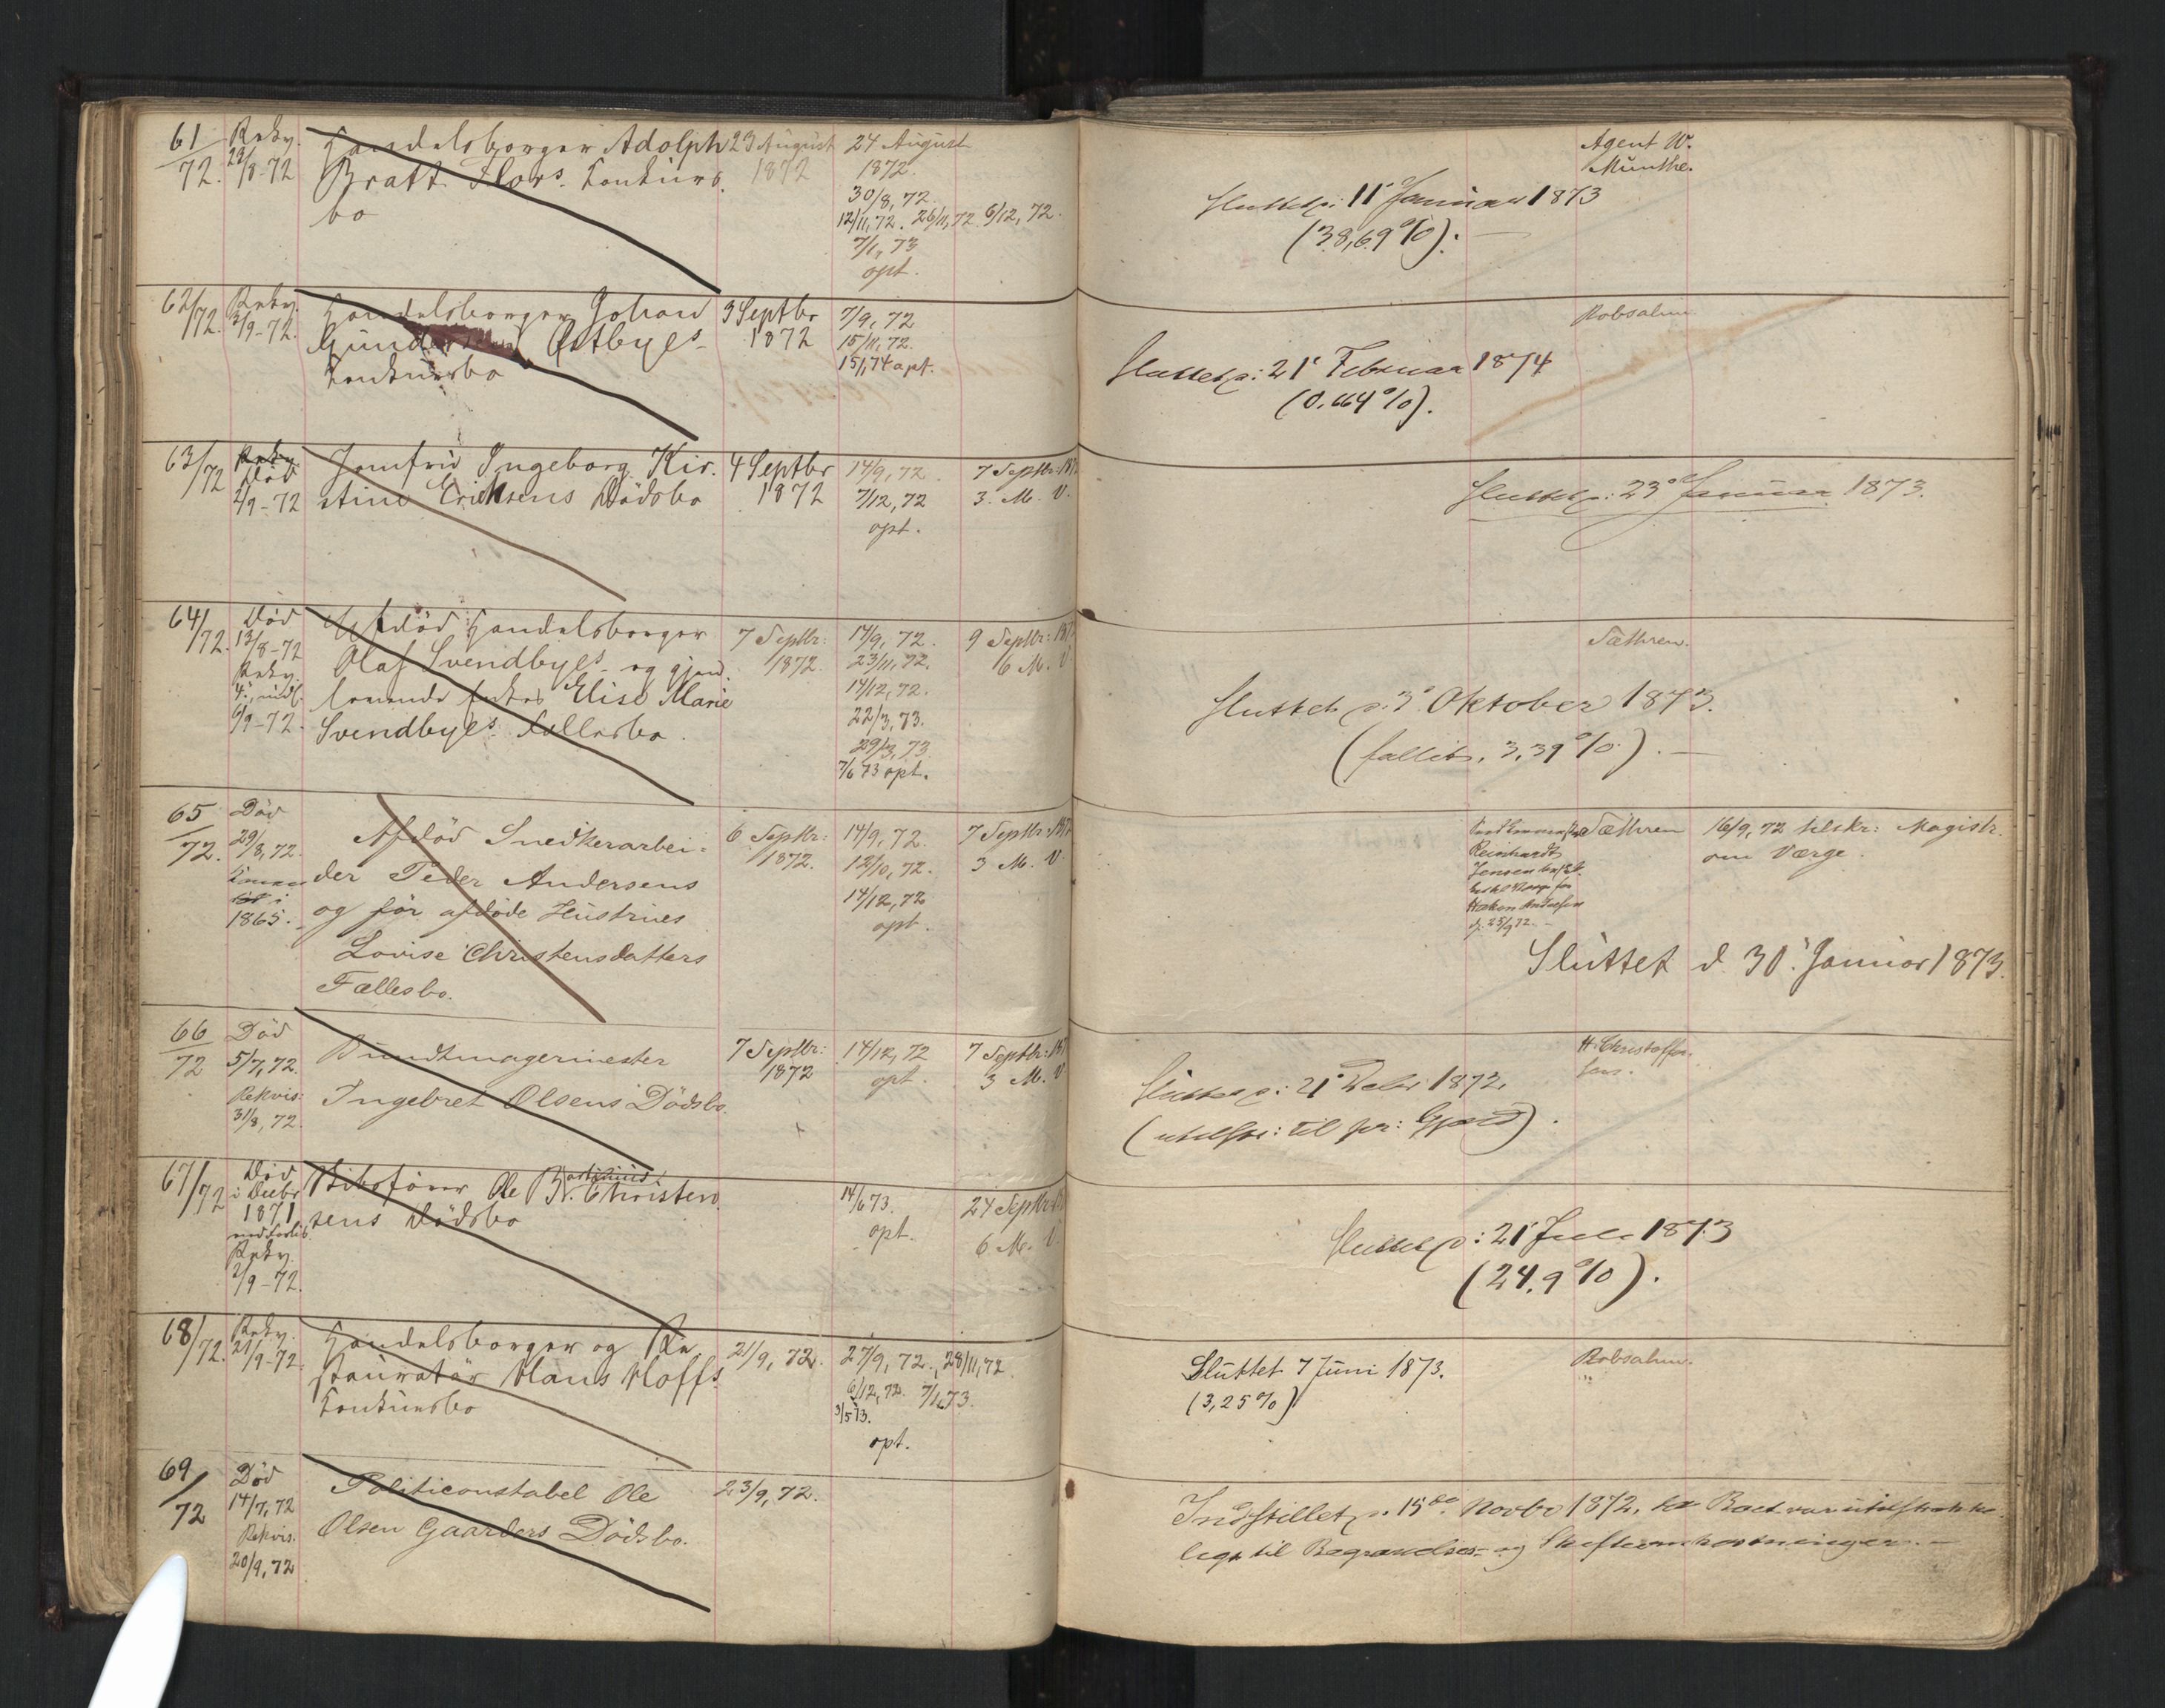 61/72. Rekv. 23/8-72 Handelsborger Adolph 23 August 24 August Agent W.
Bratt Flors Konkurs 1872 1872. Munthe.
bo 30/8, 72. Sluttet p: 11' Januar 1873
12/11, 72. 26/11, 72 6/12, 72. (38,69%).
7/1, 73
opt.
62/72. Rekv. 3/9-72. Handelsborger Johan 3 Septbr 7/9, 72 Robsahm
Østbyes 1872 15/11, 72. Sluttet p: 21' Februar 1874
Konkursbo 15/1, 74 opt. (0,664%).
63/72 Død 2/9-72 Jomfru Ingeborg Kir- 4 Septbr 14/9, 72. 7 Septbr:
stine Eriksens Dødsbo 1872 7/12, 72 3. M. V. Sluttet p: 23' Januar 1873.
opt.
64/72. Død 13/8-72 Afdød Handelsborger 7 Septbr: 14/9, 72. 9 Septbr: Sæthren.
Rekv. Olaf Svendbyes og gjen- 1872. 23/11, 72. 6 M. V
levende Enkes Elise Marie 14/12, 72. Sluttet p: 3' Oktober 1873.
6/9-72. Svendbyes Fællesbo. 22/3, 73. (fallit, 3,39%).
29/3, 73
7/6 73 opt.
65/72. Død 29/8, 72. Afdød Snedkerarbei- 6 Septbr: 14/9, 72. 7 Septbr: Sæthren 16/9, 72 tilskr: Magistr.
Konen der Peder Andersens 1872. 12/10, 72. 3 M. V. Reinhardt om Værge.
1865. og før afdøde Hustrues 14/12, 72 Jensen
Lovise Christensdatters opt.
Fællesbo. Sluttet d 30' Januar 1873.
66/72 Død 5/7, 72. Bundtmagermester 7 Septbr: 14/12, 72 7 Septbr: H. Christoffer-
Rekvis: Ingebret Olsens Dødsbo. 1872 opt. 3 M. V sen.
31/8, 72. Sluttet p: 21' Decbr 1872.
(utilstr: til pr: Gjæld).
67/72 Død i Decbr Skibsfører Ole B. Christen- 14/6 73. 24 Septbr
1871 sens Dødsbo opt. 6 M. V. Sluttet p: 21' Juli 1873
Rekv. (24,9%).
2/9-72.
68/72. Rekv. 21/9-72. Handelsborger og Re- 21/9, 72. 27/9, 72., 28/11, 72. Sluttet 7 Juni 1873. Robsahm.
stauratør Hans Hoffs 6/12, 72. 7/1, 73. (3,25%)
Konkursbo 3/5 73.
opt.
69/72 Død 14/7, 72 Politiconstabel Ole 23/9, 72. Indstillet p: 15de Novbr 1872, da Boet var utilstrække-
Rekvis. Olsen Gaarders Dødsbo. ligt til Begravelses- og Skifteomkostninger.
20/9, 72